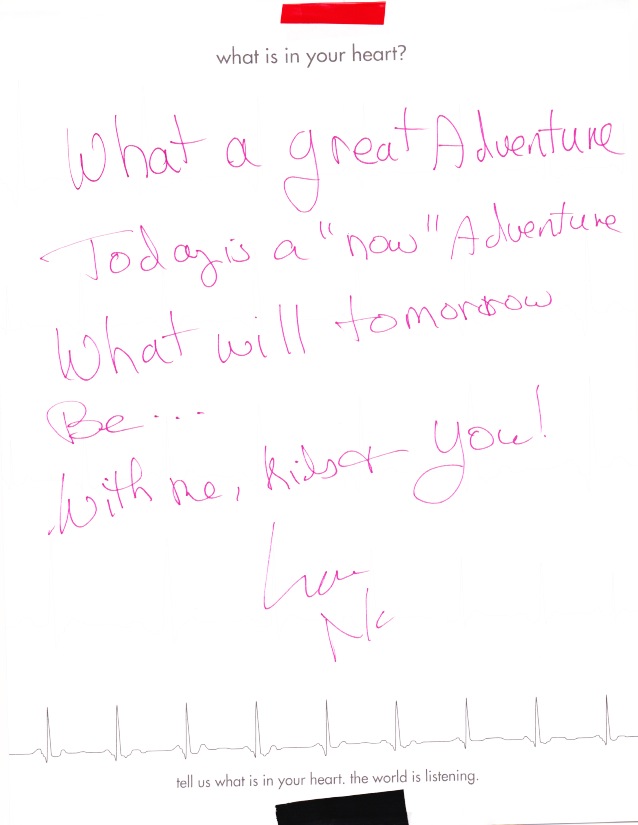 what is in your heart?
What a great Adventure
Today is a "now" Adventure
What will tomorrow
Be...
With me, kids + you!
tell us what is in your heart. the world is listening.